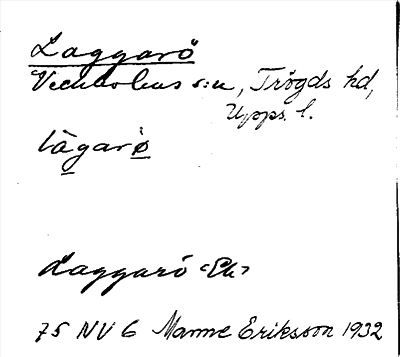 Laggarö
Veckholms s:n, Trögds hd,
Upps. l.
làgarö
Laggarö <Ek>
75 NV 6 Manne Eriksson 1932